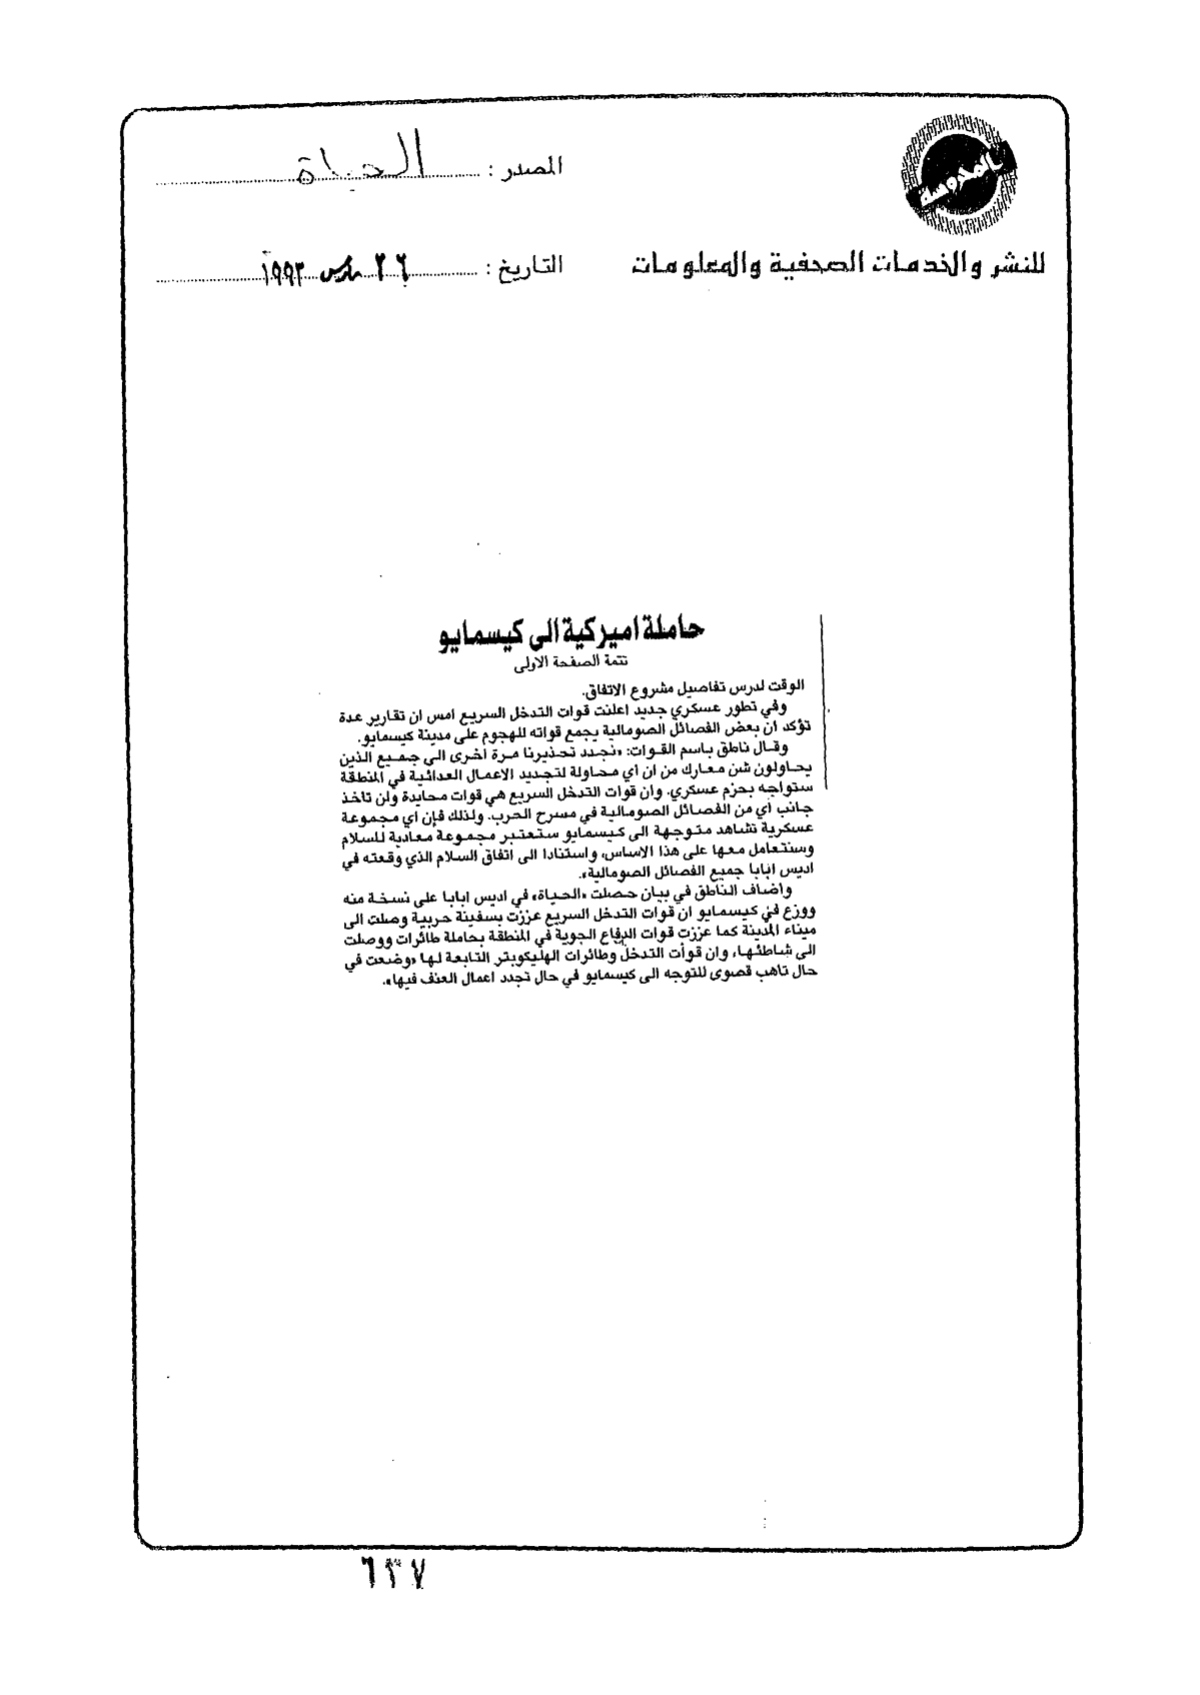 المصدر : الحياة
للنشر والخدمات الصحفية والمعلومات
التاريخ : ٢٦ مارس ١٩٩٣
حاملة اميركية الى كيسمايو
تتمة الصفحة الاولى
الوقت لدرس تفاصيل مشروع الاتفاق.
وفي تطور عسكري جديد اعلنت قوات التدخل السريع امس ان تقارير عدة
تؤكد ان بعض الفصائل الصومالية يجمع قواته للهجوم على مدينة كيسمايو.
وقال ناطق باسم القوات: «نجدد تحذيرنا مرة اخرى الى جميع الذين
يحاولون شن معارك من ان اي محاولة لتجديد الاعمال العدائية في المنطقة
ستواجه بحزم عسكري. وان قوات التدخل السريع هي قوات محايدة ولن تاخذ
جانب أي من الفصائل الصومالية في مسرح الحرب. ولذلك فإن اي مجموعة
عسكرية تشاهد متوجهة الى كيسمايو ستعتبر مجموعة معادية للسلام
وسنتعامل معها على هذا الاساس، واستنادا الى اتفاق السلام الذي وقعته في
اديس ابابا جميع الفصائل الصومالية».
واضاف الناطق في بيان حصلت «الحياة» في اديس ابابا على نسخة منه
ووزع في كيسمايو ان قوات التدخل السريع عززت بسفينة حربية وصلت الى
ميناء المدينة كما عززت قوات الدفاع الجوية في المنطقة بحاملة طائرات ووصلت
الى شاطئها، وان قوات التدخل وطائرات الهليكوبتر التابعة لها «وضعت في
حال تاهب قصوى للتوجه الى كيسمايو في حال تجدد اعمال العنف فيها».
٦٣٧